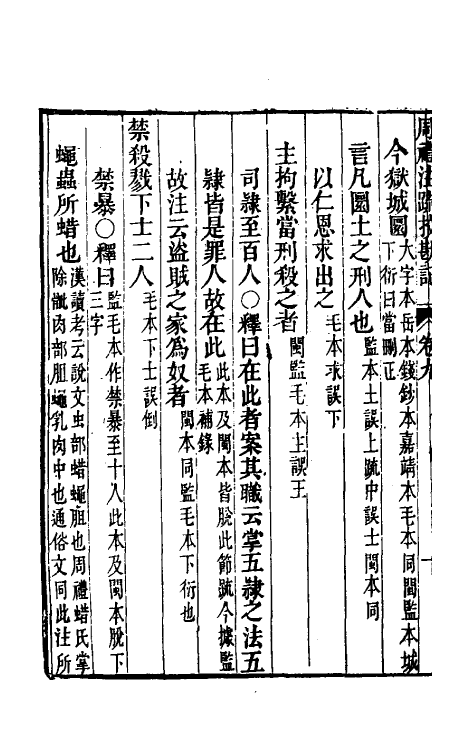 周禮注疏挍勘記 卷九 十
今獄城圜大字本岳本錢鈔本嘉靖本毛本同閩監本城
下衍曰當刪正
言凡圜土之刑人也監本土誤上䟽中誤士閩本同
以仁恩求出之毛本求誤下
主拘繫當刑殺之者閩監毛本主誤王
司隸至百人○釋曰在此者案其職云掌五隸之法五
隸皆是罪人故在此此本及閩本皆脫此節䟽今據監
毛本補錄
故注云盜賊之家爲奴者閩本同監毛本下衍也
禁殺戮下士二人毛本下士誤倒
禁暴○釋曰監毛本作禁暴至十人此本及閩本脫下
三字
蠅蟲所蜡也漢讀考云說文虫部蜡蠅胆也周禮蜡氏掌
除骴肉部胆蠅乳肉中也通俗文同此注所